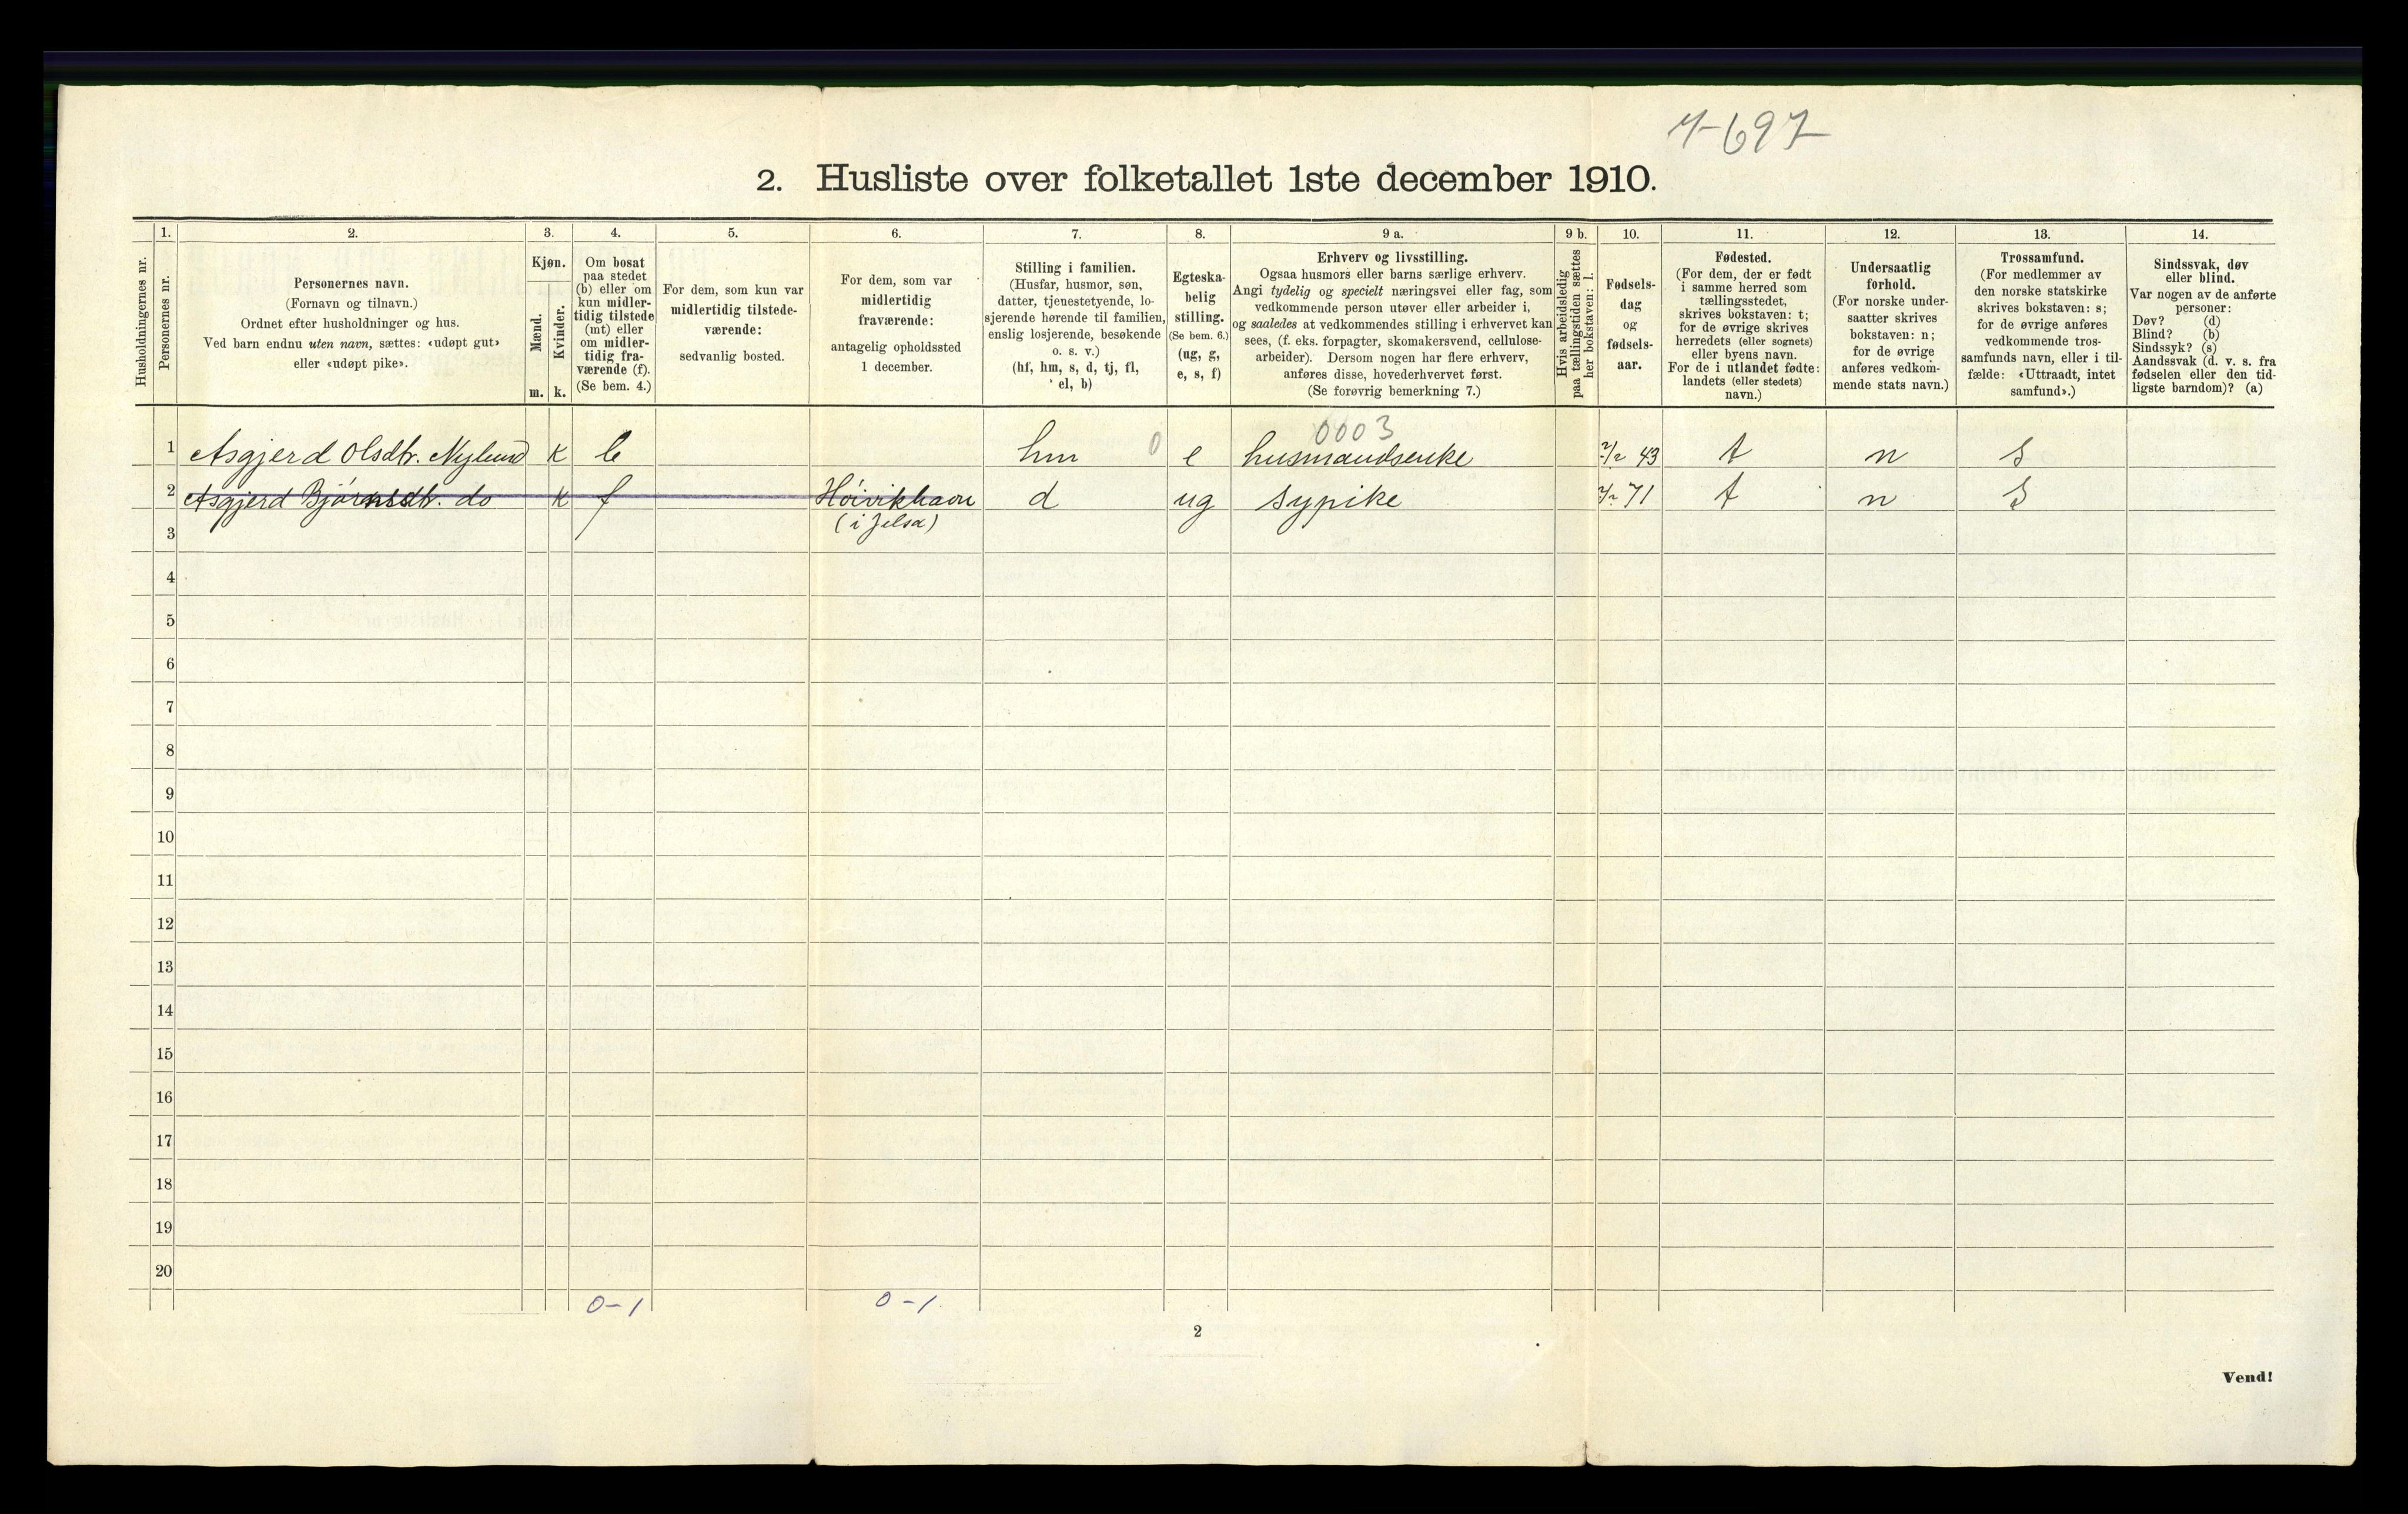 2. Husliste over folketallet 1ste december 1910.
Husholdningernes nr.
1.
Personernes nr.
2.
Personernes navn.
(Fornavn og tilnavn.)
Ordnet efter husholdninger og hus.
Ved barn endnu uten navn, sættes: «udøpt gut»
eller «udøpt pike».
3.
Kjøn.
Mænd.
Kvinder.
m. k.
4.
Om bosat
paa stedet
(b) eller om
kun midler-
tidig tilstede
(mt) eller
om midler-
tidig fra-
værende (f).
(Se bem. 4.)
5.
For dem, som kun var
midlertidig tilstede-
værende:
sedvanlig bosted.
6.
For dem, som var
midlertidig
fraværende:
antagelig opholdssted
1 december.
7.
Stilling i familien.
(Husfar, husmor, søn,
datter, tjenestetyende, lo-
sjerende hørende til familien,
enslig losjerende, besøkende
o. s. v.)
(hf, hm, s, d, tj, fl,
el, b)
8.
Egteska-
belig
stilling.
(Se bem. 6.)
(ug, g,
e, s, f)
9 a.
Erhverv og livsstilling.
Ogsaa husmors eller barns særlige erhverv.
Angi tydelig og specielt næringsvei eller fag, som
vedkommende person utøver eller arbeider i,
og saaledes at vedkommendes stilling i erhvervet kan
sees, (f. eks. forpagter, skomakersvend, cellulose-
arbeider). Dersom nogen har flere erhverv,
anføres disse, hovederhvervet først.
(Se forøvrig bemerkning 7.)
9 b.
Hvis arbeidsledig
paa tællingstiden sættes
her bokstaven: l.
10.
Fødsels-
dag
og
fødsels-
aar.
11.
Fødested.
(For dem, der er født
i samme herred som
tællingsstedet,
skrives bokstaven: t;
for de øvrige skrives
herredets (eller sognets)
eller byens navn.
For de i utlandet fødte:
landets (eller stedets)
navn.)
12.
Undersaatlig
forhold.
(For norske under-
saatter skrives
bokstaven: n;
for de øvrige
anføres vedkom-
mende stats navn.)
13.
Trossamfund.
(For medlemmer av
den norske statskirke
skrives bokstaven: s;
for de øvrige anføres
vedkommende tros-
samfunds navn, eller i til-
fælde: «Uttraadt, intet
samfund».)
14.
Sindssvak, døv
eller blind.
Var nogen av de anførte
personer:
Døv? (d)
Blind? (b)
Sindssyk? (s)
Aandssvak (d. v. s. fra
fødselen eller den tid-
ligste barndom)? (a)
0003
1 Asgjerd Olsdtr. Nylund k b hm 0 e husmandsenke 2/2 43 t n s
2 Asgjerd Bjørnsdtr. do k f Høivikhavn d ug sypike 71 t n s
(i Jelsa)
3
4
5
6
7
8
9
10
11
12
13
14
15
16
17
18
19
20
0-1 0-1
2
Vend!